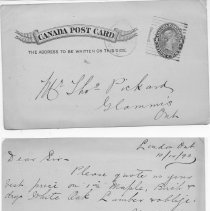 CANADA POST CARD
THE ADDRESS TO BE WRITTEN ON THIS SIDE.
Mr Thos Pickard
Glammis
Ont
London Ont
Dear Sir
Please quote us your
best price on Maple, Birch &
White Oak Lumber & oblige